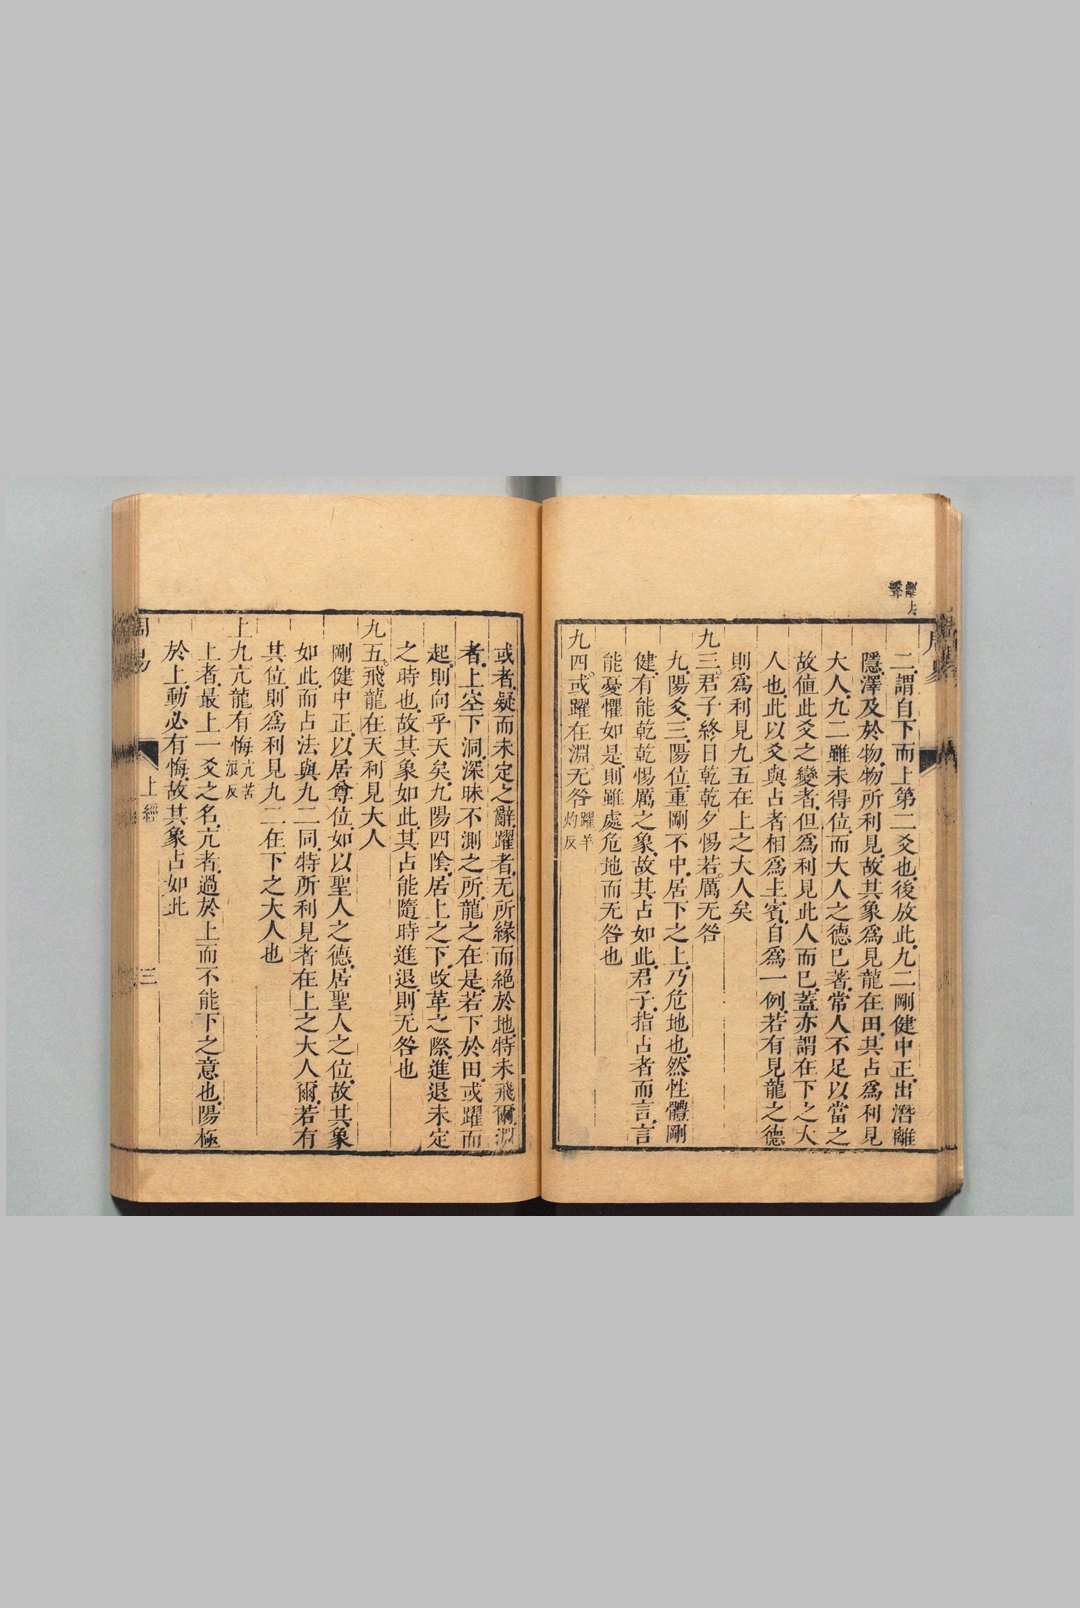 二謂自下而上第二爻也後放此九二剛健中正出潛離
隱澤及於物物所利見故其象爲見龍在田其占爲利見
大人九二雖未得位而大人之德已著常人不足以當之
故値此爻之變者但爲利見此人而已蓋亦謂在下之大
人也此以爻與占者相爲主賓自爲一例若有見龍之德
則爲利見九五在上之大人矣
九三君子終日乾乾夕惕若厲无咎
九陽爻三陽位重剛不中居下之上乃危地也然性體剛
健有能乾乾惕厲之象故其占如此君子指占者而言言
能憂懼如是則雖處危地而无咎也
九四或躍在淵无咎躍羊灼反
或者疑而未定之辭躍者无所緣而絕於地特未飛爾淵
者上空下洞深昧不測之所龍之在是若下於田或躍而
起則向乎天矣九陽四陰居上之下改革之際進退未定
之時也故其象如此其占能隨時進退則无咎也
九五飛龍在天利見大人
剛健中正以居尊位如以聖人之德居聖人之位故其象
如此而占法與九二同特所利見者在上之大人爾若有
其位則爲利見九二在下之大人也
上九亢龍有悔亢苦浪反
上者最上一爻之名亢者過於上而不能下之意也陽極
於上動必有悔故其象占如此
周易 上經 三